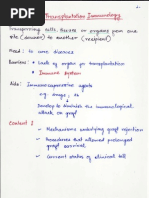 Transplantation Immunology
Transferring cells, tissues or organs from one
site (donor) to another (recipient)
Need: to cure disease
Barriers: • Lack of organ for transplantation
• Immune System
Aids: • Immunosuppressive agents
e.g. drugs, to
Develop to diminish the immunological
attack on graft
Content :
✓ Mechanisms underlying graft rejection
✓ Procedures that allowed prolonged
graft survival
✓ Current status of clinical